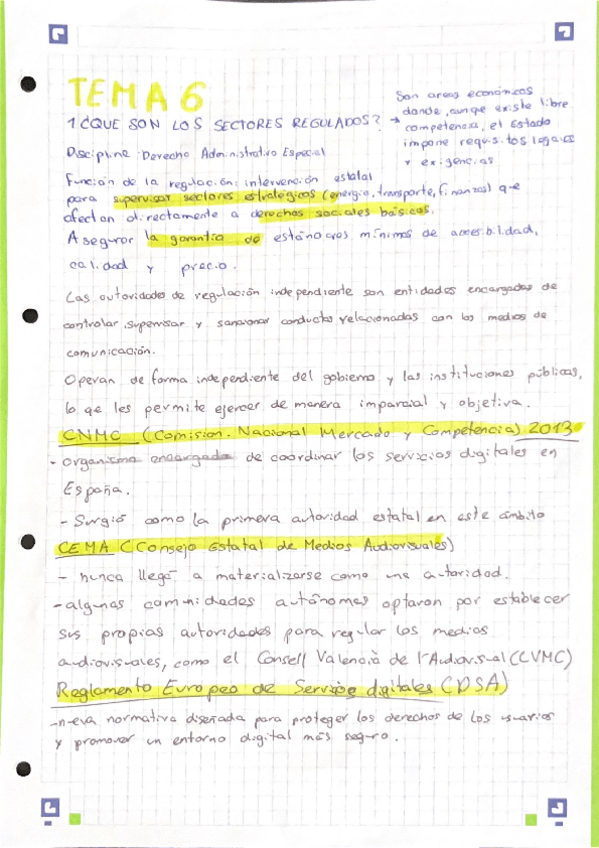 TEMA 6
1. ¿QUE SON LOS SECTORES REGULADOS? →
Son areas económicas
donde, aunque existe libre
competencia, el Estado
impone requisitos legales
y exigencias
Disciplina: Derecho Administrativo Especial
Función de la regulación: intervención estatal
para supervisar sectores estratégicos (energia, transporte, finanzas) que
afectan directamente a derechos sociales básicos.
Asegurar la garantía de estándares mínimos de accesibilidad,
calidad y precio.
Las autoridades de regulación independiente son entidades encargadas de
controlar, supervisar y sancionar conductas relacionadas con los medios de
comunicación.
Operan de forma independiente del gobierno y las instituciones públicas,
lo que les permite ejercer de manera imparcial y objetiva.
CNMC (Comision. Nacional Mercado y Competencia) 2013
- organismo encargado de coordinar los servicios digitales en
España.
- Surgió como la primera autoridad estatal en este ámbito
CEMA (Consejo Estatal de Medios Audiovisuales)
- nunca llegó a materializarse como una autoridad.
- algunas comunidades autónomas optaron por establecer
sus propias autoridades para regular los medios
audiovisuales, como el Consell Valencià de l'Audiovisual (CVMC)
Reglamento Europeo de Servicios digitales (DSA)
- nueva normativa diseñada para proteger los derechos de los usuarios
y promover un entorno digital más seguro.